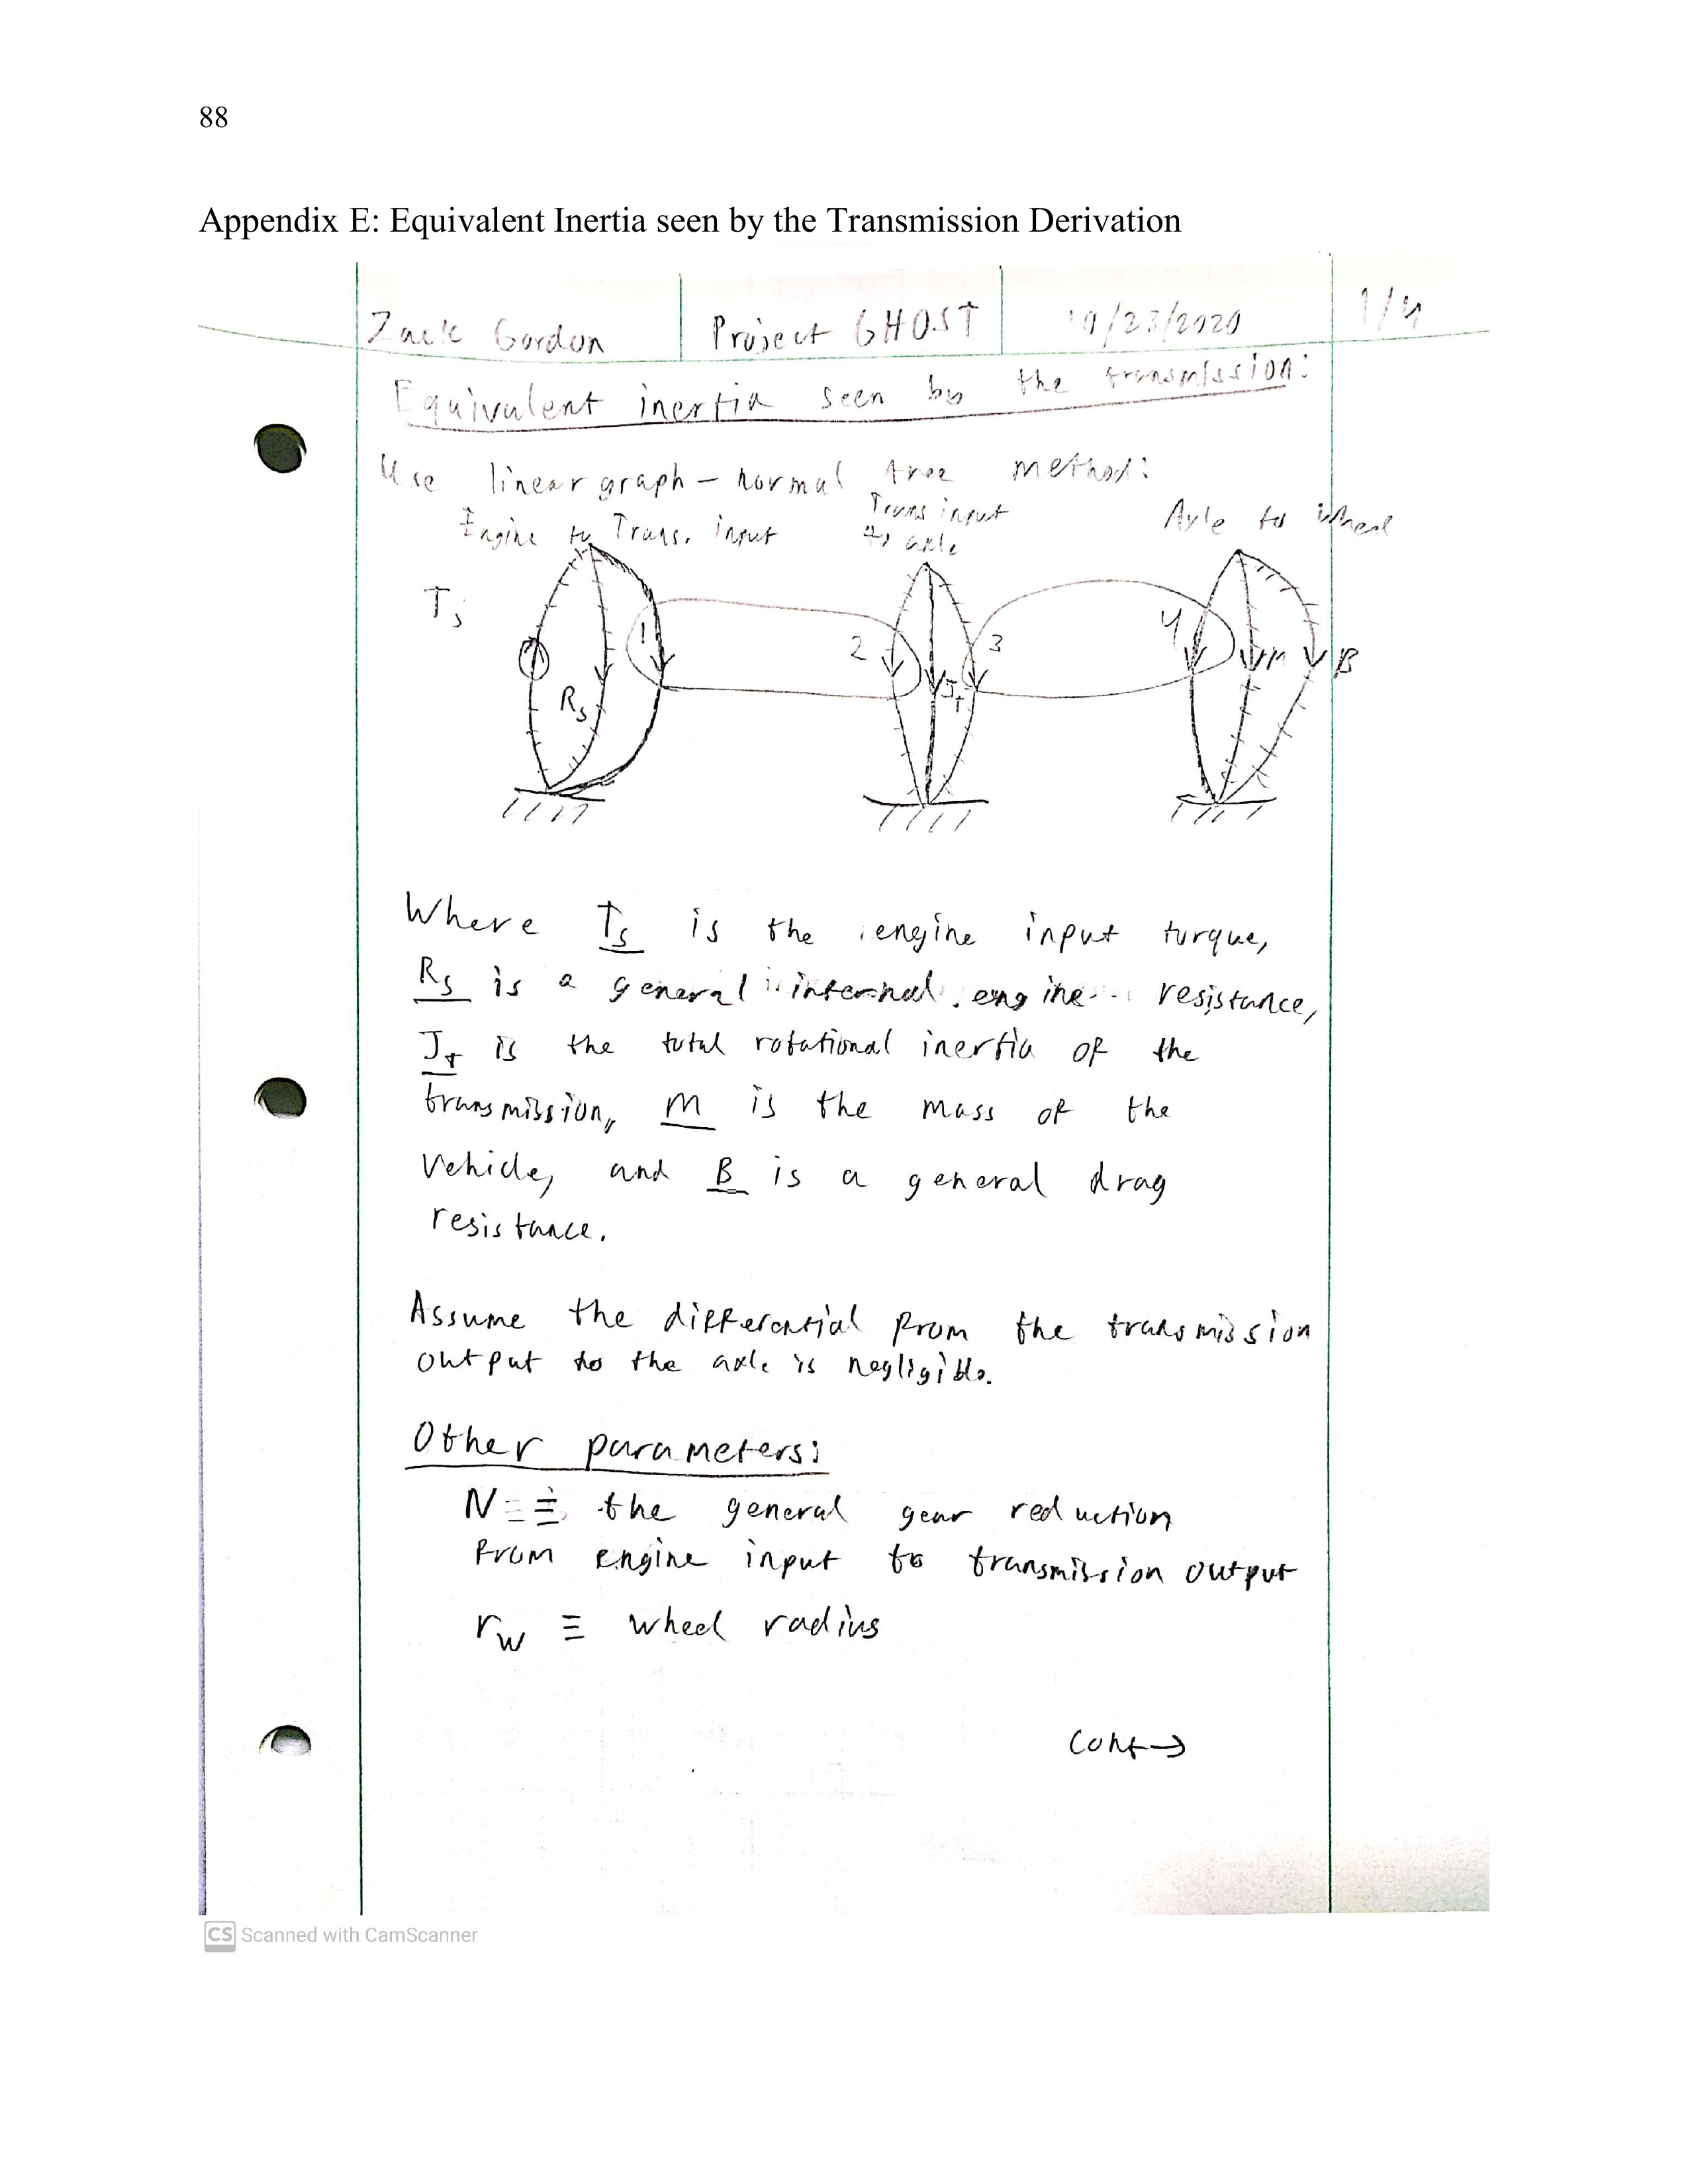 88
Appendix E: Equivalent Inertia seen by the Transmission Derivation
Zack Gordon
Project GHOST
10/23/2020
1/4
Equivalent inertia seen by the transmission:
Use linear graph - normal tree method:
Engine to Trans. input
Trans input
to axle
Axle to wheel
Ts
1
2
3
4
M
B
Rs
JT
Where Ts is the engine input torque,
Rs is a general internal engine resistance,
JT is the total rotational inertia of the
transmission, m is the mass of the
vehicle, and B is a general drag
resistance.
Assume the differential from the transmission
output to the axle is negligible.
Other parameters:
N ≡ the general gear reduction
from engine input to transmission output
rw ≡ wheel radius
Cont→
CS Scanned with CamScanner